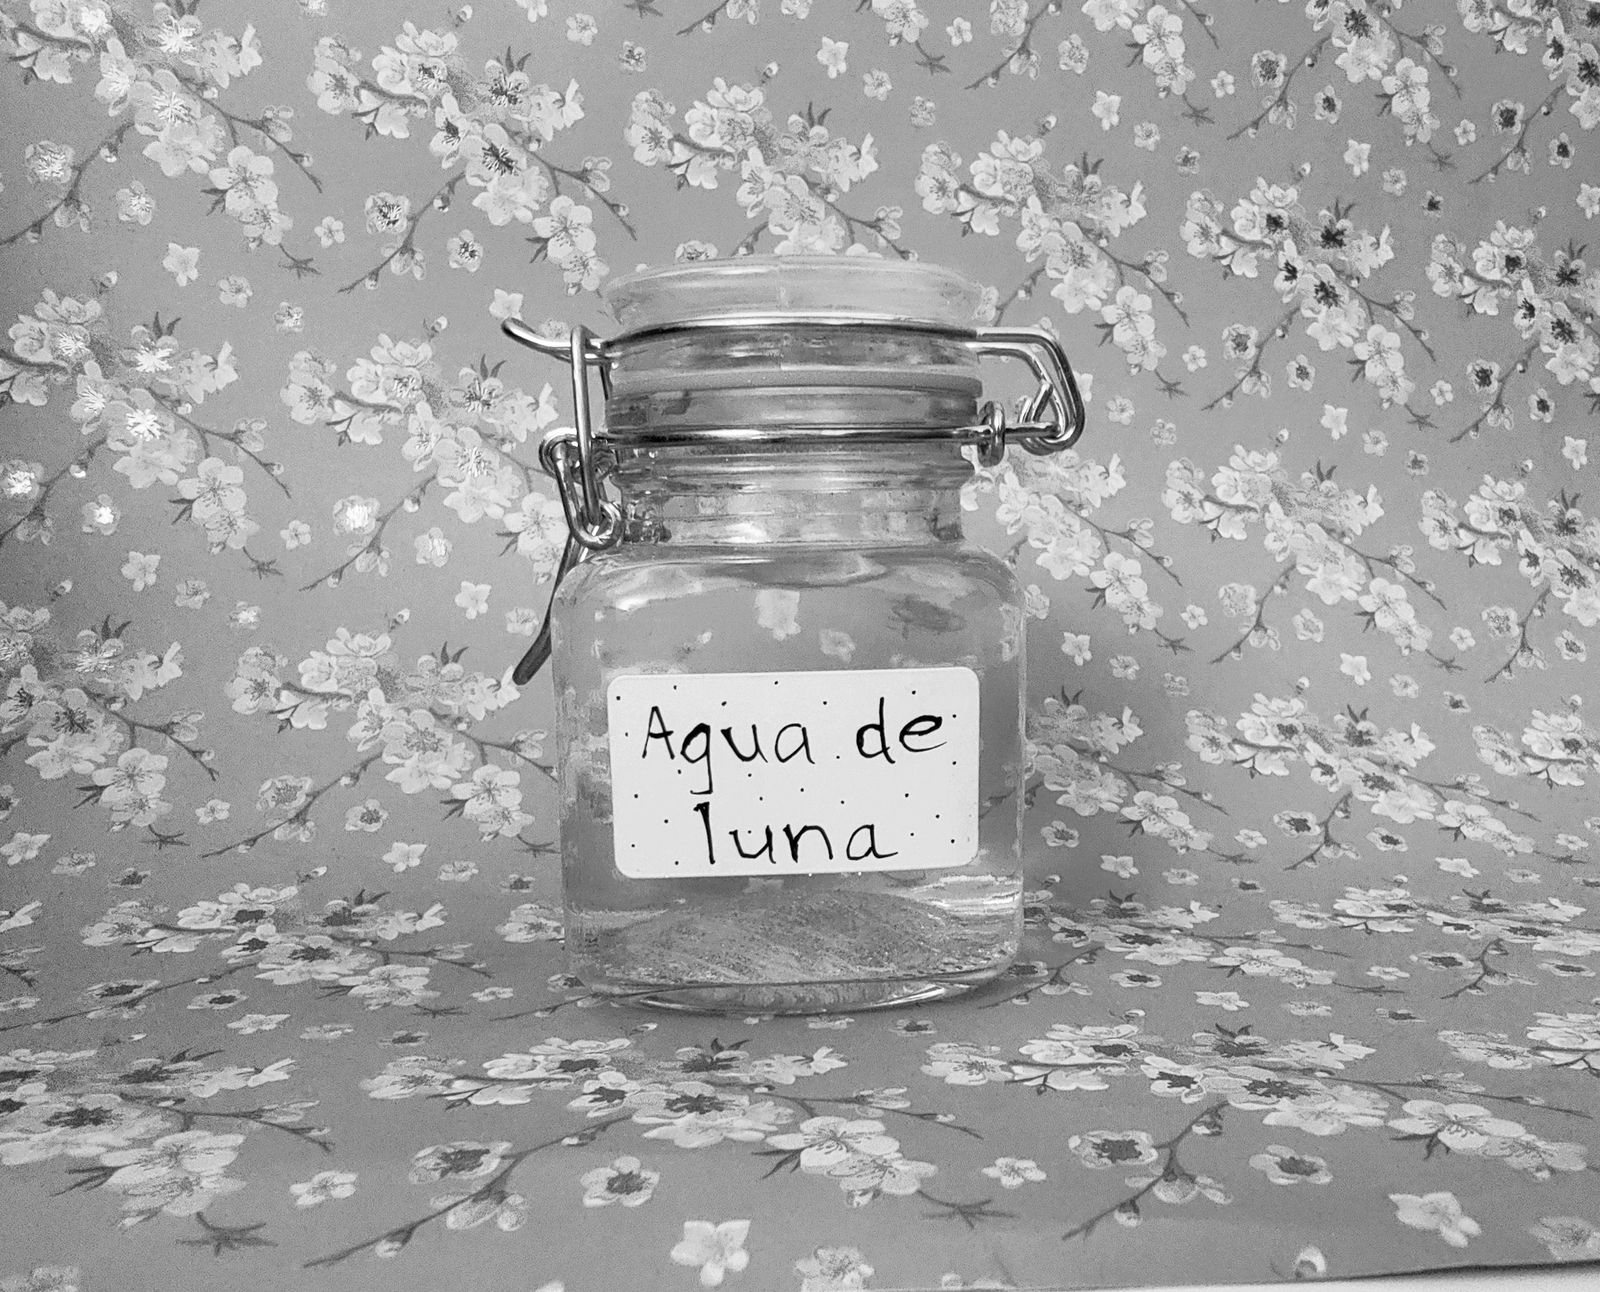 Agua de
luna